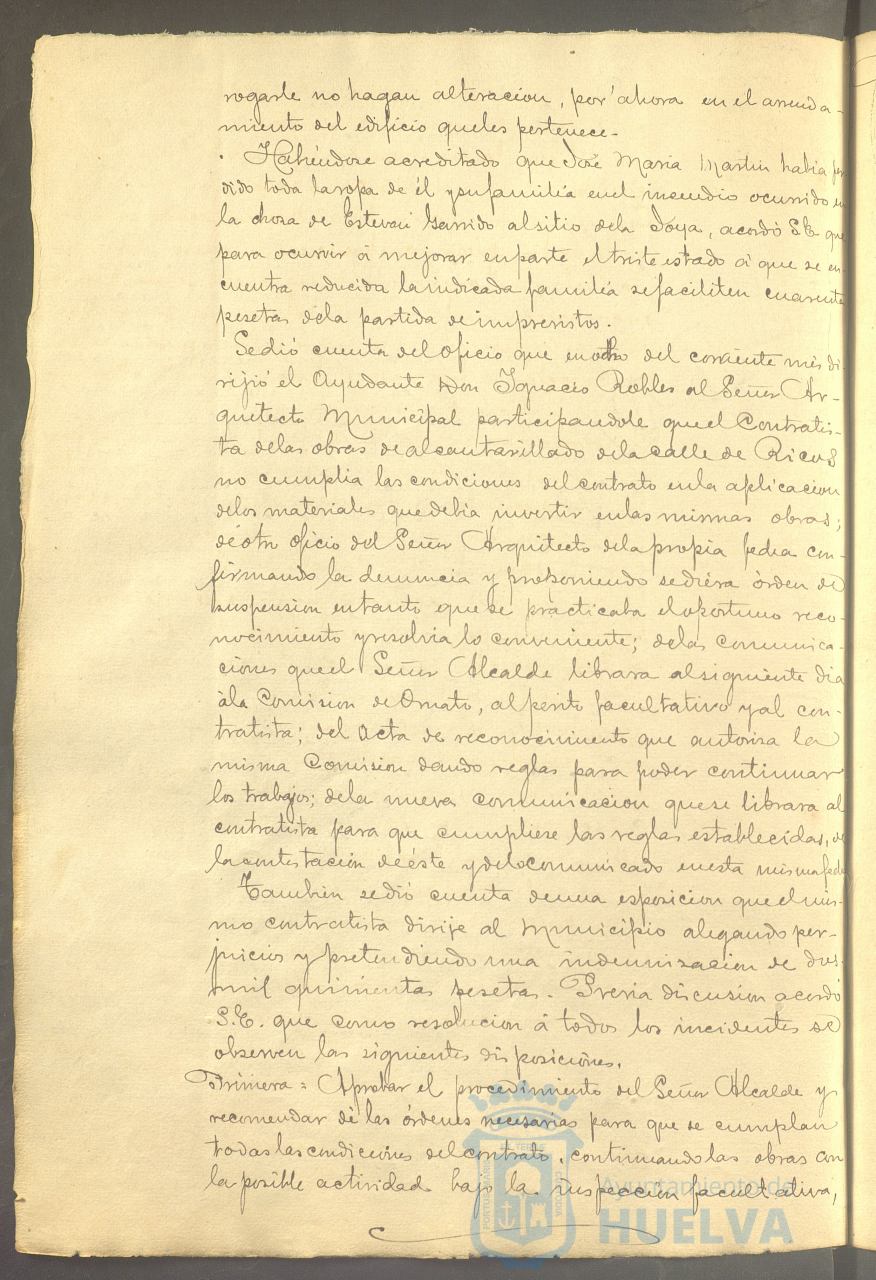 rogarle no hagan alteracion, por ahora en el arrenda-
miento del edificio queles pertenece.
Habiéndose acreditado que José Maria Martin habia per
dido toda la ropa de él y su familia en el incendio ocurrido en
la choza de Estevan Garrido al sitio de la Joya, acordó S.E. que
para ocurrir á mejorar en parte el triste estado á que se en-
cuentra reducida la indicada familia se faciliten cuarenta
pesetas de la partida de imprevistos.
Se dió cuenta del oficio que en ocho del corriente mes di-
rijió el Ayudante Don Ignacio Robles al Señor Ar-
quitecto Municipal participandole que el Contratis-
ta de las obras de alcantarillado de la calle de Ricos
no cumplia las condiciones del contrato en la aplicacion
de los materiales que debia invertir en las mismas obras;
de otro oficio del Señor Arquitecto de la propia fecha con-
firmando la denuncia y proponiendo se diera órden de
suspension en tanto que se practicaba el oportuno reco-
nocimiento y resolvia lo conveniente; de las comunica-
ciones que el Señor Alcalde librara al siguiente dia
á la Comision de Ornato, al perito facultativo y al con-
tratista; del acta de reconocimiento que autoriza la
misma Comision dando reglas para poder continuar
los trabajos; de la nueva comunicacion que se librara al
contratista para que cumpliese las reglas establecidas, de
la contestacion de éste y de lo comunicado en esta misma fecha
Tambien se dió cuenta de una esposicion que el mis-
mo contratista dirije al Municipio alegando per-
juicios y pretendiendo una indemnizacion de dos
mil quinientas pesetas. Previa discusion acordó
S.E. que como resolucion á todos los incidentes se
observen las siguientes disposiciones.
Primera = Aprobar el procedimiento del Señor Alcalde y
recomendar dé las órdenes necesarias para que se cumplan
todas las condiciones del contrato, continuando las obras con
la posible actividad bajo la inspeccion facultativa,
Ayuntamiento de
HUELVA